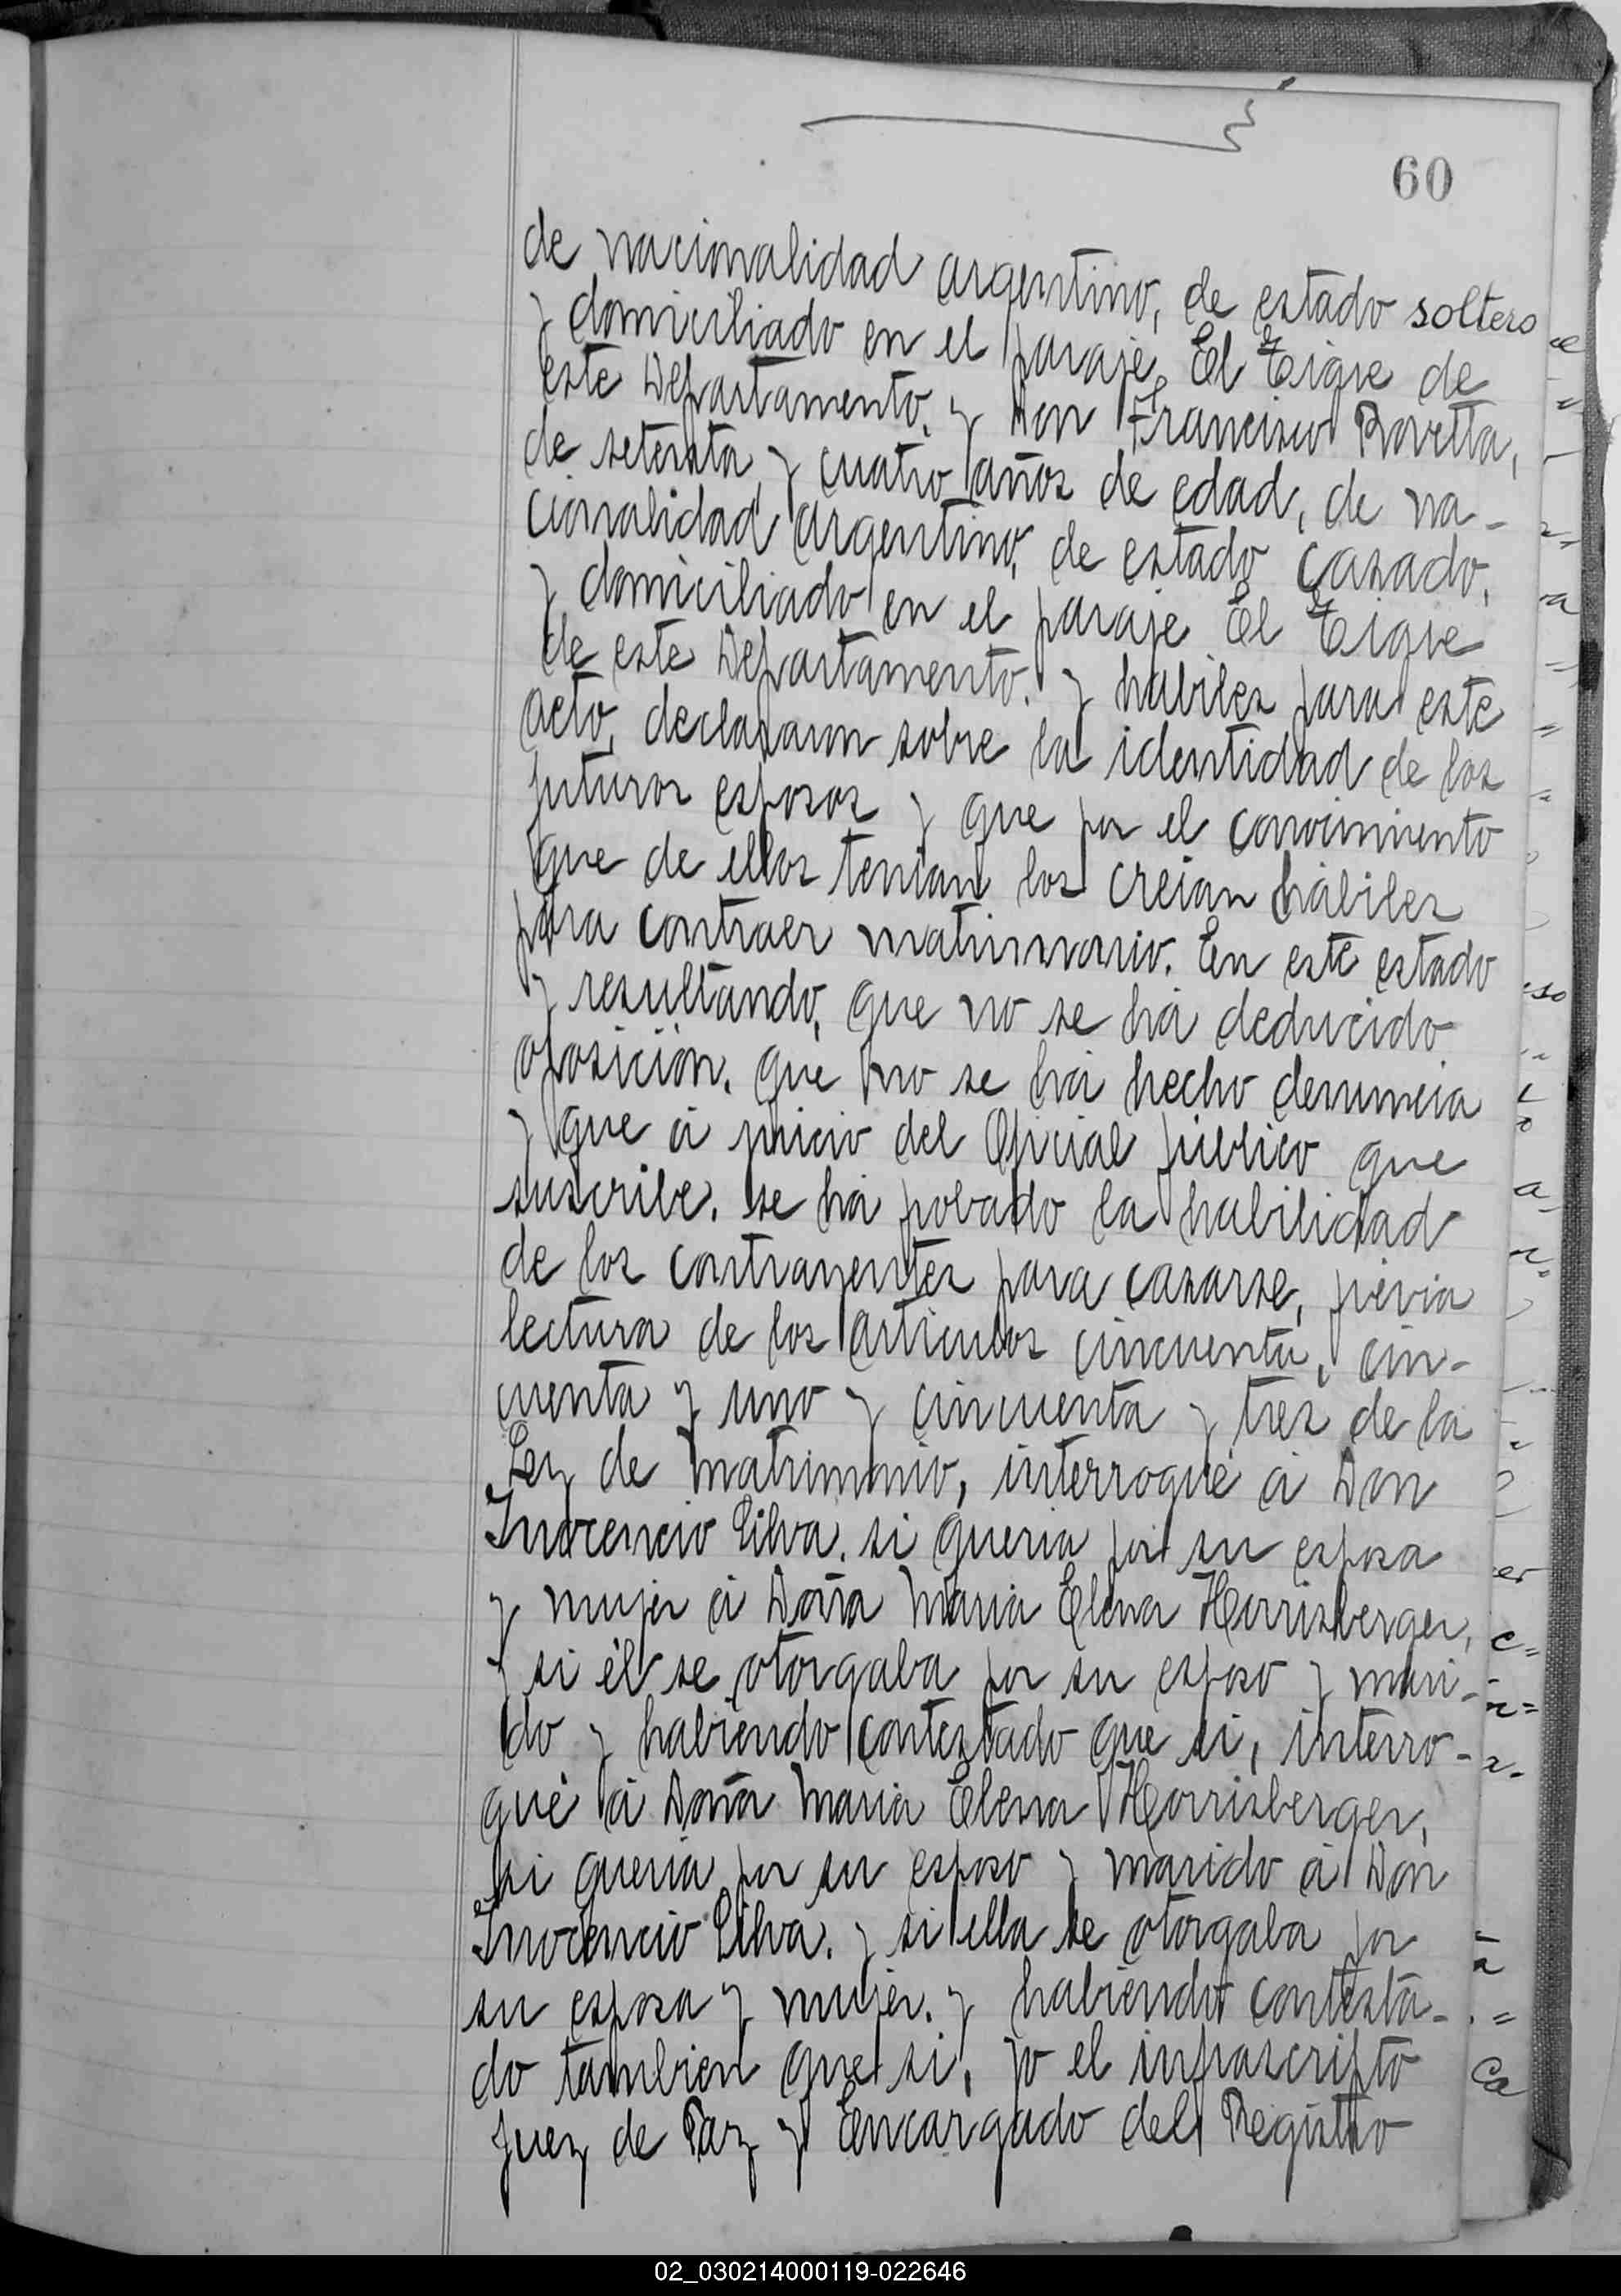 60
de nacionalidad argentino, de estado soltero
y domiciliado en el paraje El Tigre de
este Departamento. y Don Francisco Rovetta,
de setenta y cuatro años de edad, de na-
cionalidad argentino, de estado casado,
y domiciliado en el paraje El Tigre
de este Departamento. y habiles para este
acto, declararon sobre la identidad de los
futuros esposos y que por el conocimiento
que de ellos tenian los creian hábiles
para contraer matrimonio. En este estado
y resultando, que no se há deducido
oposición, que no se há hecho denuncia
y que á juicio del Oficial público que
suscribe. se há probado la habilidad
de los contrayentes para casarse, prévia
lectura de los articulos cincuenta, cin-
cuenta y uno y cincuenta y tres de la
Ley de Matrimonio, interrogué á Don
Inocencio Silva. si queria por su esposa
y mujer á Doña Maria Elena Harrisberger,
y si él se otorgaba por su esposo y mari-
do y habiendo contestado que si, interro-
gué á Doña Maria Elena Harrisberger,
si queria por su esposo y marido á Don
Inocencio Silva. y si ella se otorgaba por
su esposa y mujer. y habiendo contesta-
do tambien que si, yo el infrascripto
Juez de Paz y Encargado del Registro
02_030214000119-022646